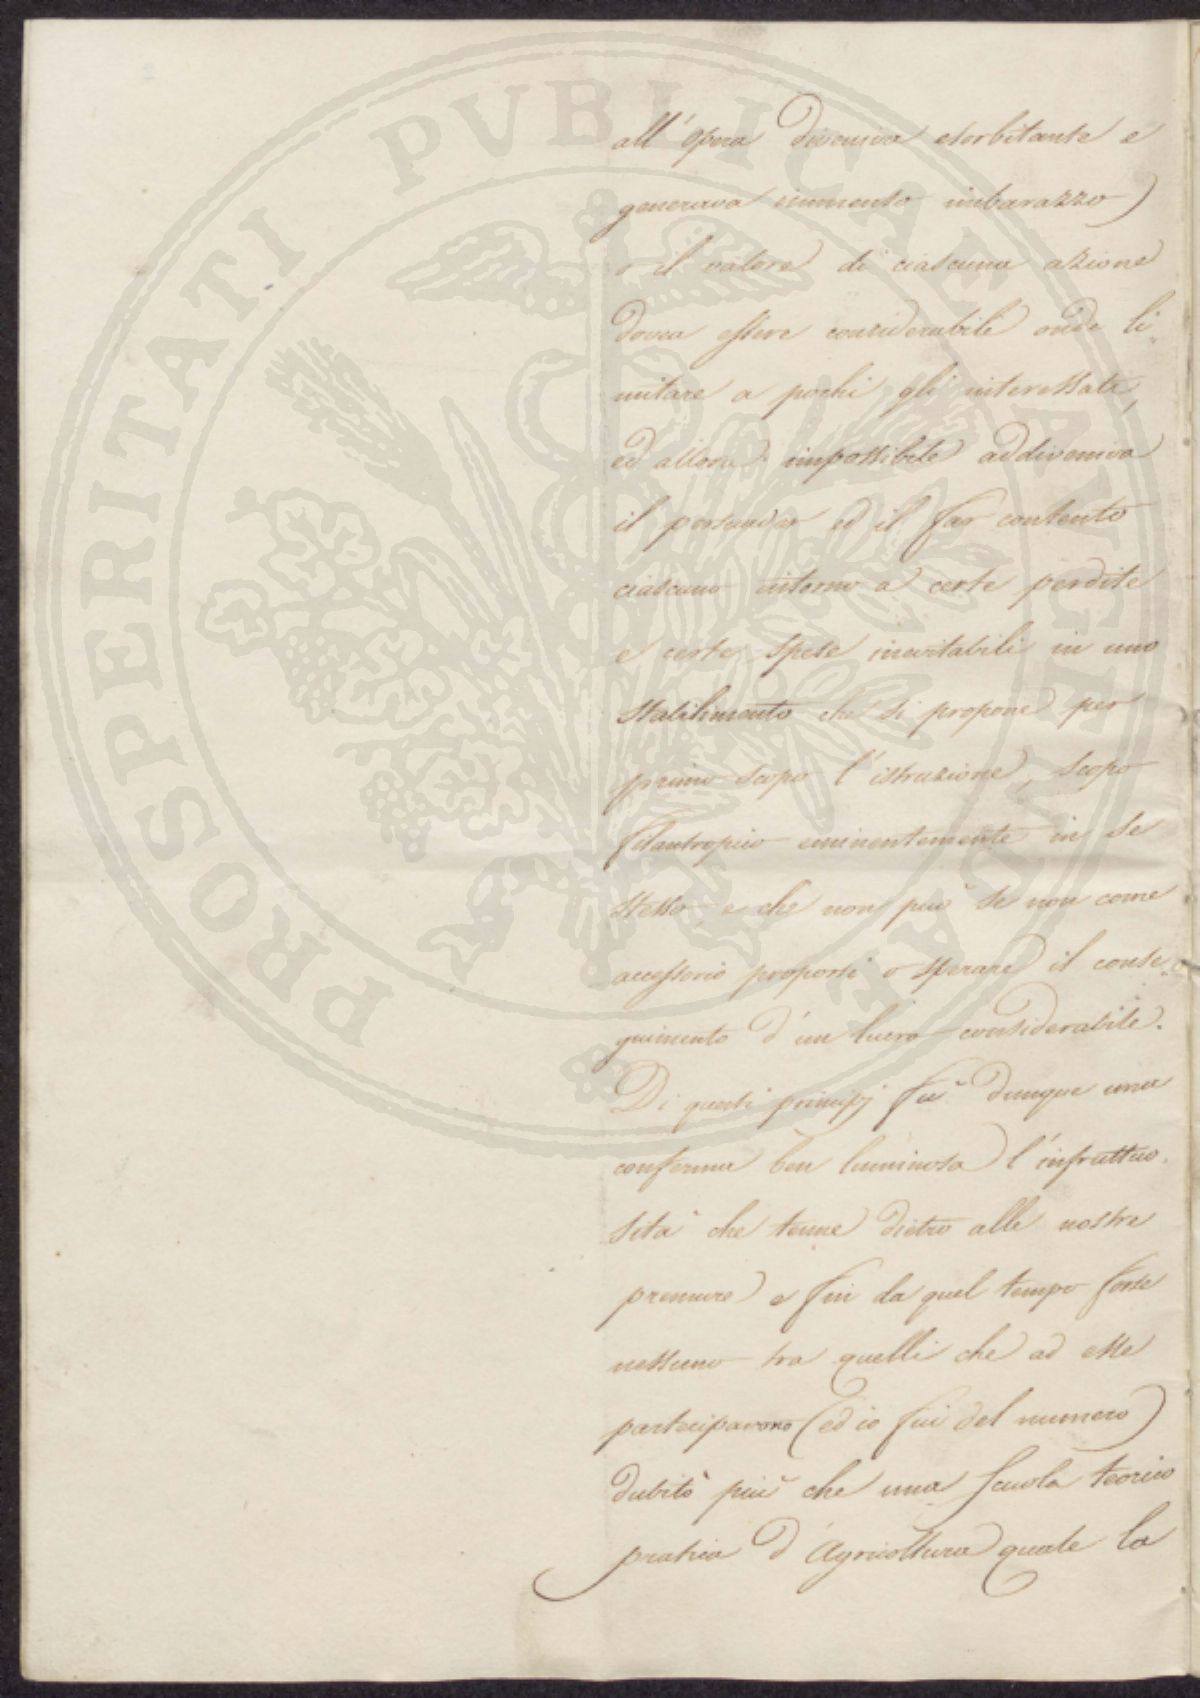 all'opera diveniva esorbitante e
generava immenso imbarazzo)
o il valore di ciascuna azione
dovea essere considerabile onde li„
mitare a pochi gli interessati,
ed allora impossibile addiveniva
il persuader ed il far contento
ciascuno intorno a certe perdite
e certe spese inevitabili in uno
stabilimento che si propone per
primo scopo l'istruzione, scopo
filantropico eminentemente in se
stesso e che non può se non come
accessorio proporsi o sperare il conse„
guimento d'un lucro considerabile.
Di questi principj fù dunque una
conferma ben luminosa l'infruttuo„
sità che tenne dietro alle nostre
premure e fin da quel tempo forse
nessuno tra quelli che ad esse
partecipavono (ed io fui del numero)
dubitò più che una Scuola teorico
pratica d'Agricoltura quale la
PROSPERITATI PVBLICAE AVGENDAE